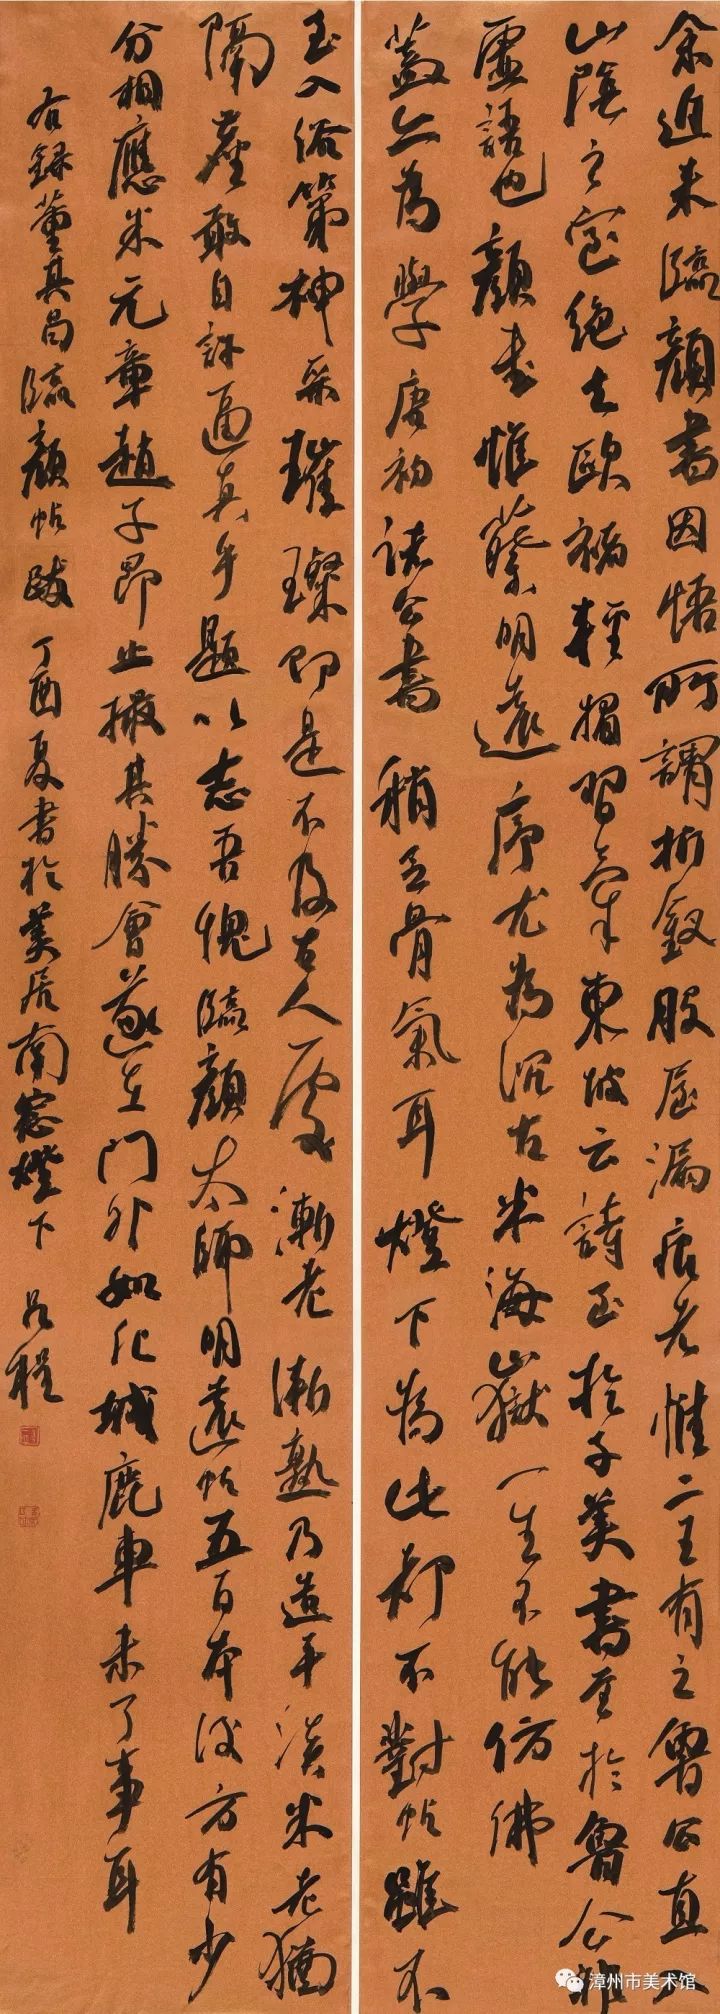 余近来臨顏書因悟所謂折釵股屋漏痕者惟二王有之魯公直入
山陰之室絕去歐褚輕媚習氣東坡云詩至於子美書至於魯公非
虛語也顏書惟蔡明遠序尤為沉古米海嶽一生不能仿佛
蓋亦為學唐初諸公書稍乏骨氣耳燈下為此都不對帖雖不
至入俗第神采璀璨即是不及古人處漸老漸熟乃造平淡米老猶
隔塵敢自許逼真乎題以志吾愧臨顏太師明遠帖五百本後方有少
分相應米元章趙子昂止撮其勝會遂在門外如化城鹿車未了事耳
右錄董其昌臨顏帖跋 丁酉夏書於 居南窗燈下
漳州市美术馆